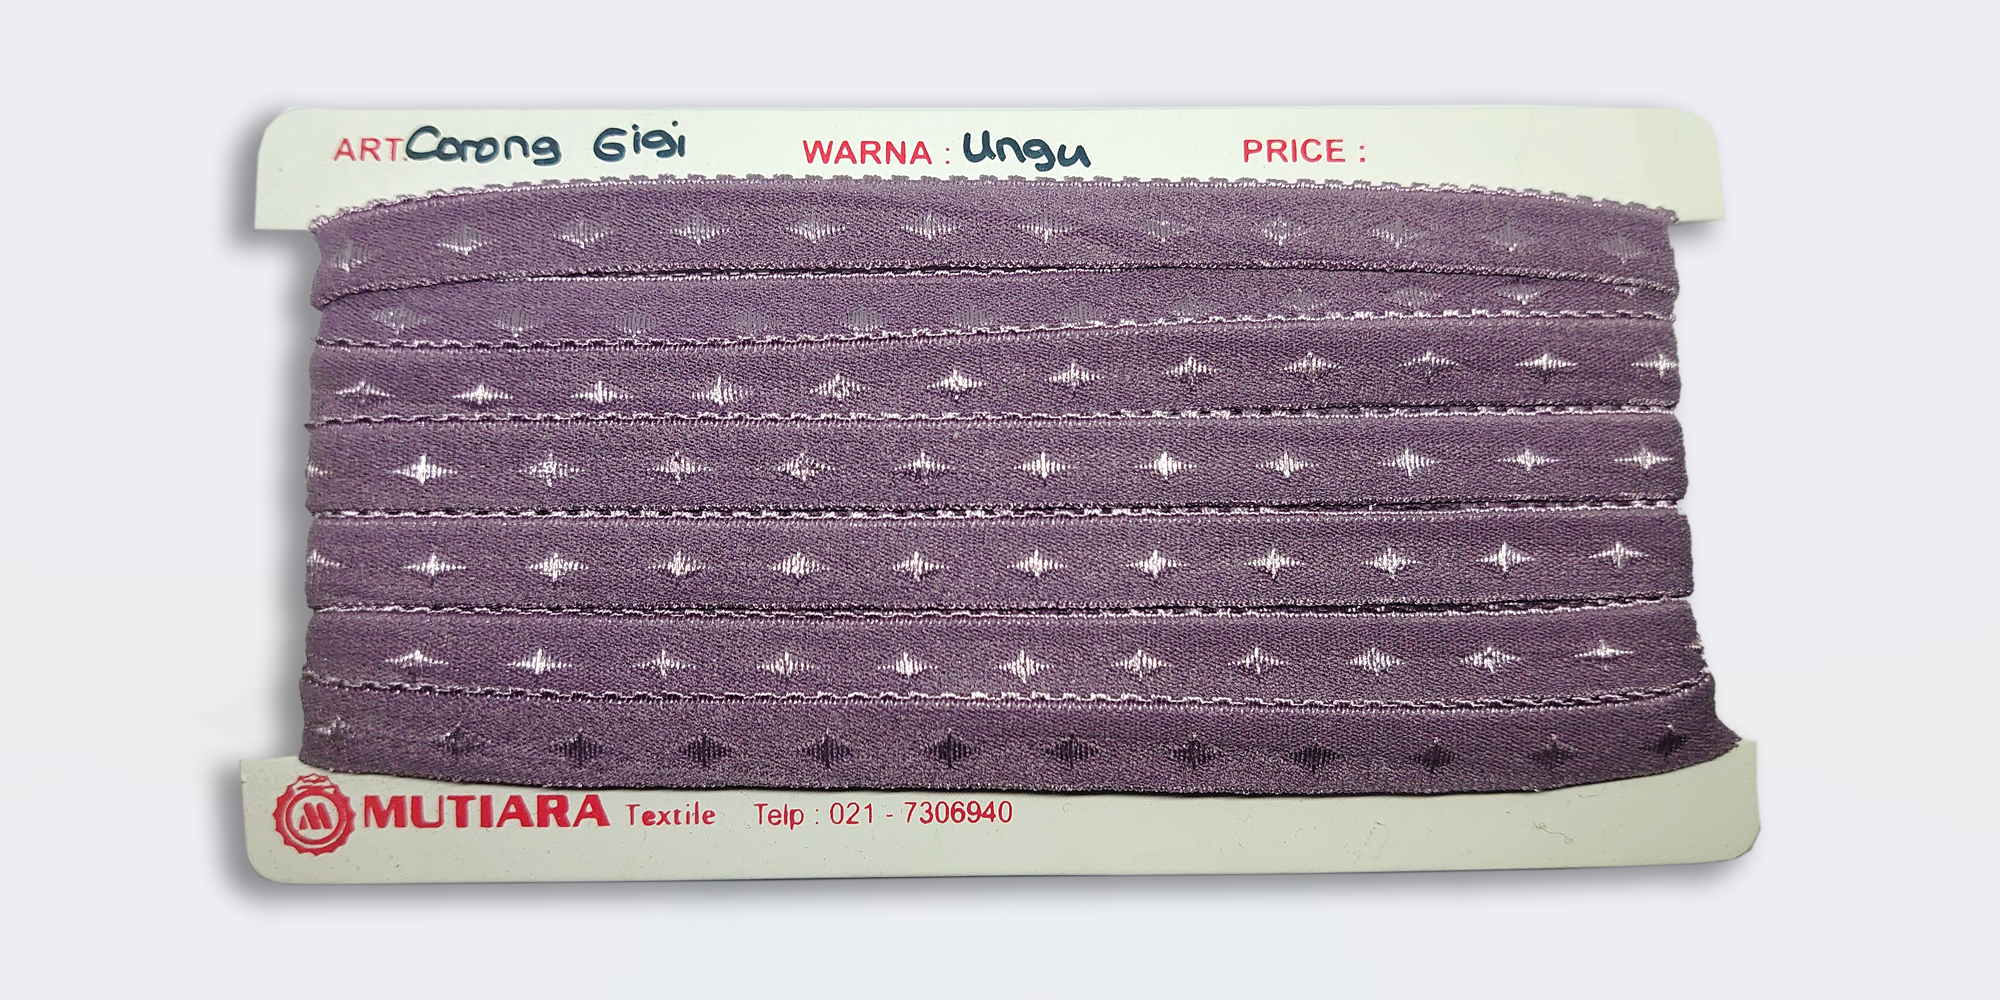 ART. Corong Gigi WARNA : Ungu PRICE :
M MUTIARA Textile Telp : 021 - 7306940